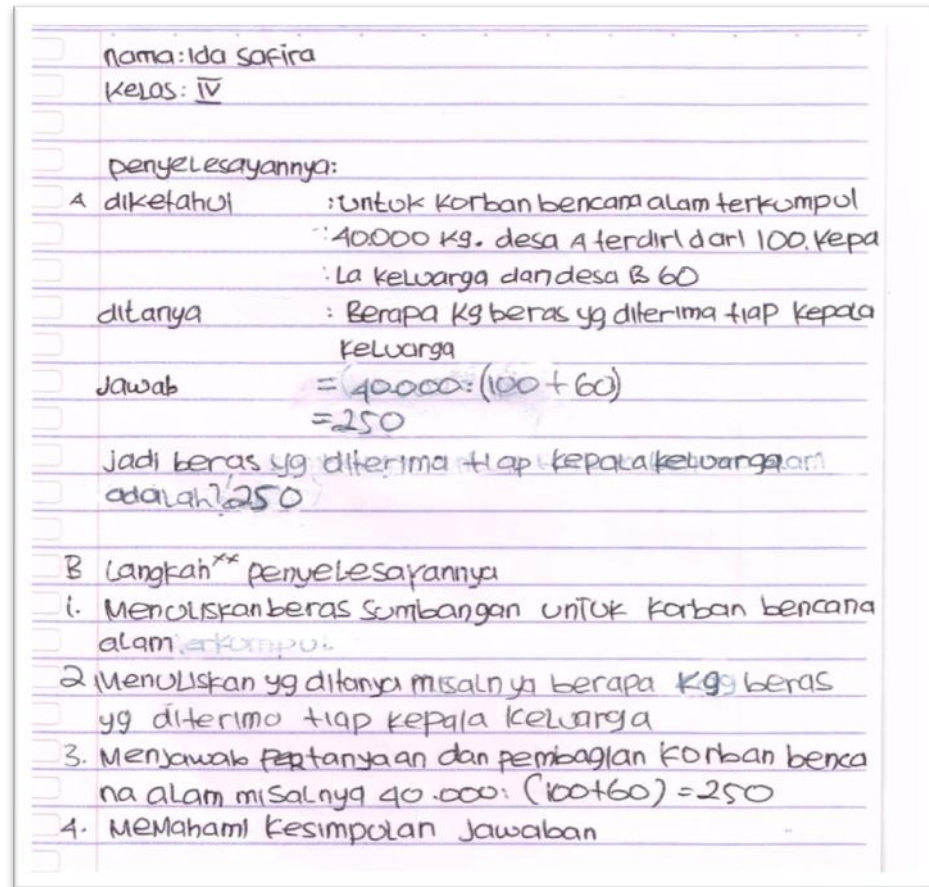 nama: Ida Safira
Kelas: IV
penyelesayannya:
A diketahui : untuk korban bencana alam terkumpul
: 40.000 kg. desa A terdiri dari 100. kepa
: La keluarga dan desa B 60
ditanya : Berapa kg beras yg diterima tiap kepala
keluarga
Jawab = 40.000: (100 + 60)
= 250
Jadi beras yg diterima tiap kepala keluarga
adalah 250
B Langkah** penyelesayannya
1. Menuliskan beras sumbangan untuk korban bencana
alam
2 Menuliskan yg ditanya misalnya berapa kg beras
yg diterima tiap kepala keluarga
3. Menjawab pertanyaan dan pembagian korban benca
na alam misalnya 40.000: (100+60) = 250
4. Memahami kesimpulan Jawaban